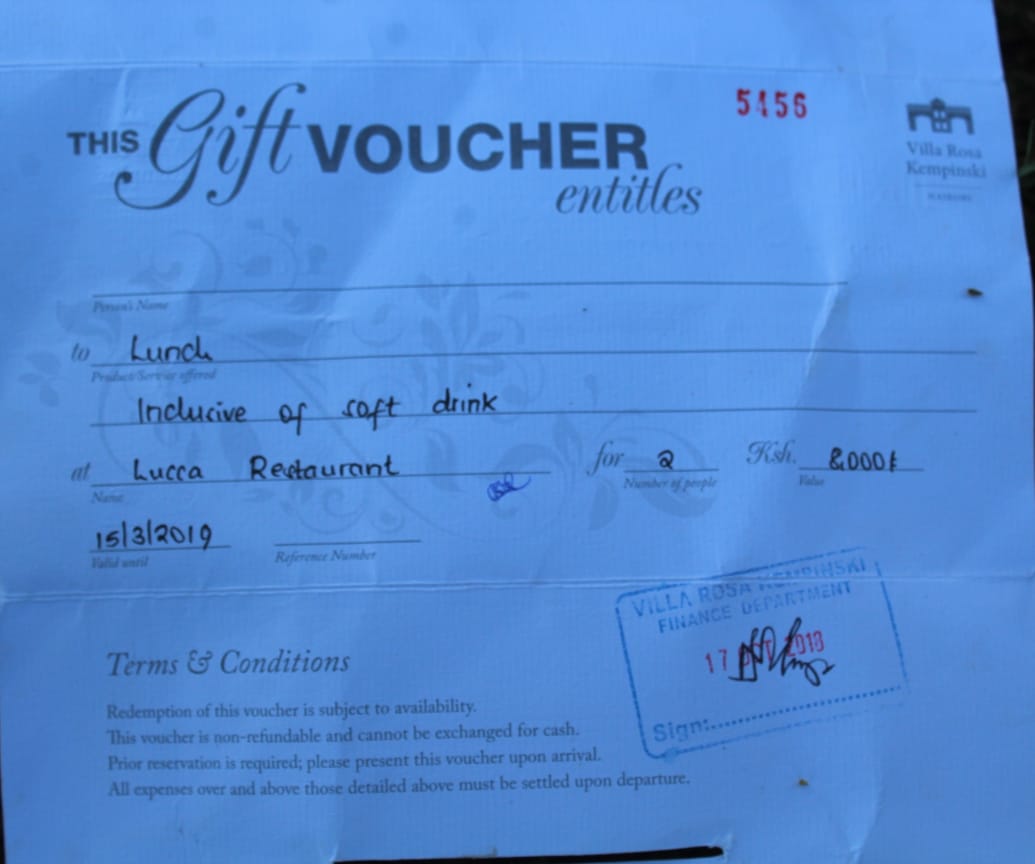 5456
THIS Gift VOUCHER
entitles
Villa Rosa
Kempinski
NAIROBI
Person's Name
to Lunch
Product/Service offered
Inclusive of soft drink
at Lucca Restaurant for 2 Ksh. 8000/=
Name Number of people Value
15/3/2019
Valid until Reference Number
VILLA ROSA KEMPINSKI
FINANCE DEPARTMENT
17 2018
Sign:
Terms & Conditions
Redemption of this voucher is subject to availability.
This voucher is non-refundable and cannot be exchanged for cash.
Prior reservation is required; please present this voucher upon arrival.
All expenses over and above those detailed above must be settled upon departure.